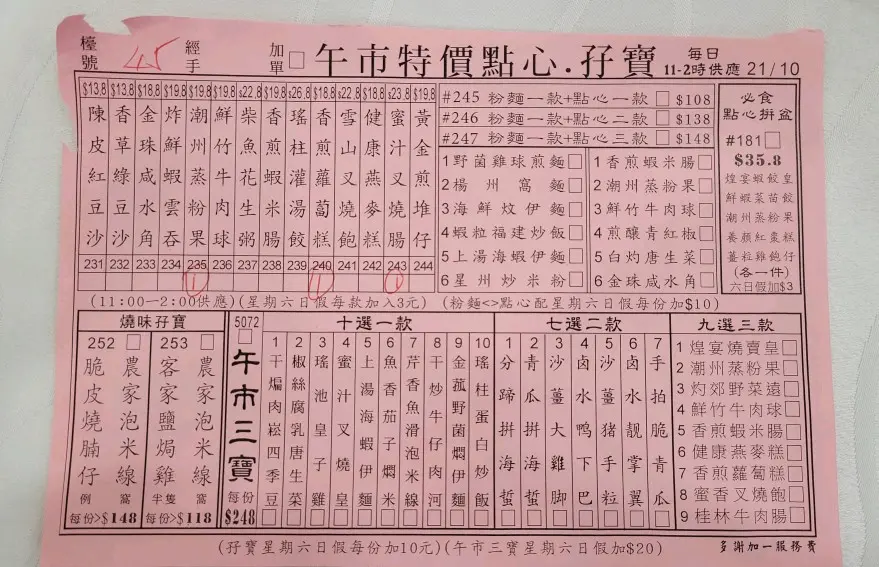 檯號 45 經手 加單 午市特價點心.孖寶 每日11-2時供應 21/10
$13.8 $13.8 $18.8 $19.8 $19.8 $19.8 $22.8 $19.8 $26.8 $18.8 $22.8 $18.8 $23.8 $19.8
陳皮紅豆沙
香草綠豆沙
金珠咸水角
炸鮮蝦雲吞
潮州蒸粉果
鮮竹牛肉球
柴魚花生粥
香煎蝦米腸
瑤柱灌湯餃
香煎蘿蔔糕
雪山叉燒飽
健康燕麥糕
蜜汁叉燒腸
黃金煎堆仔
231 232 233 234 235 236 237 238 239 240 241 242 243 244
1 1 1
(11:00—2:00供應)(星期六日假每款加入3元)
#245 粉麵一款+點心一款 $108
#246 粉麵一款+點心二款 $138
#247 粉麵一款+點心三款 $148
1野菌雞球煎麵
2楊州窩麵
3海鮮炆伊麵
4蝦粒福建炒飯
5上湯海蝦伊麵
6星州炒米粉
1香煎蝦米腸
2潮州蒸粉果
3鮮竹牛肉球
4煎釀青紅椒
5白灼唐生菜
6金珠咸水角
(粉麵<>點心配星期六日假每份加$10)
必食
點心拼盆
#181
$35.8
煌宴蝦餃皇
鮮蝦菜苗餃
潮州蒸粉果
養顏紅棗糕
薑粒雞飽仔
(各一件)
六日假加$3
燒味孖寶
252
脆皮燒腩仔
農家泡米線
例 窩
每份>$148
253
客家鹽焗雞
農家泡米線
半隻 窩
每份>$118
5072
午市三寶
每份
$248
十選一款
1干煸肉崧四季豆
2椒絲腐乳唐生菜
3瑤池皇子雞
4蜜汁叉燒皇
5上湯海蝦伊麵
6魚香茄子燜米
7芹香魚滑泡米線
8干炒牛仔肉河
9金菰野菌燜伊麵
10瑤柱蛋白炒飯
七選二款
1分蹄拼海蜇
2青瓜拼海蜇
3沙薑大雞脚
4卤水鸭下巴
5沙薑猪手粒
6卤水靓掌翼
7手拍脆青瓜
九選三款
1煌宴燒賣皇
2潮州蒸粉果
3灼郊野菜遠
4鮮竹牛肉球
5香煎蝦米腸
6健康燕麥糕
7香煎蘿蔔糕
8蜜香叉燒飽
9桂林牛肉腸
(孖寶星期六日假每份加10元)(午市三寶星期六日假加$20)
多謝加一服務費